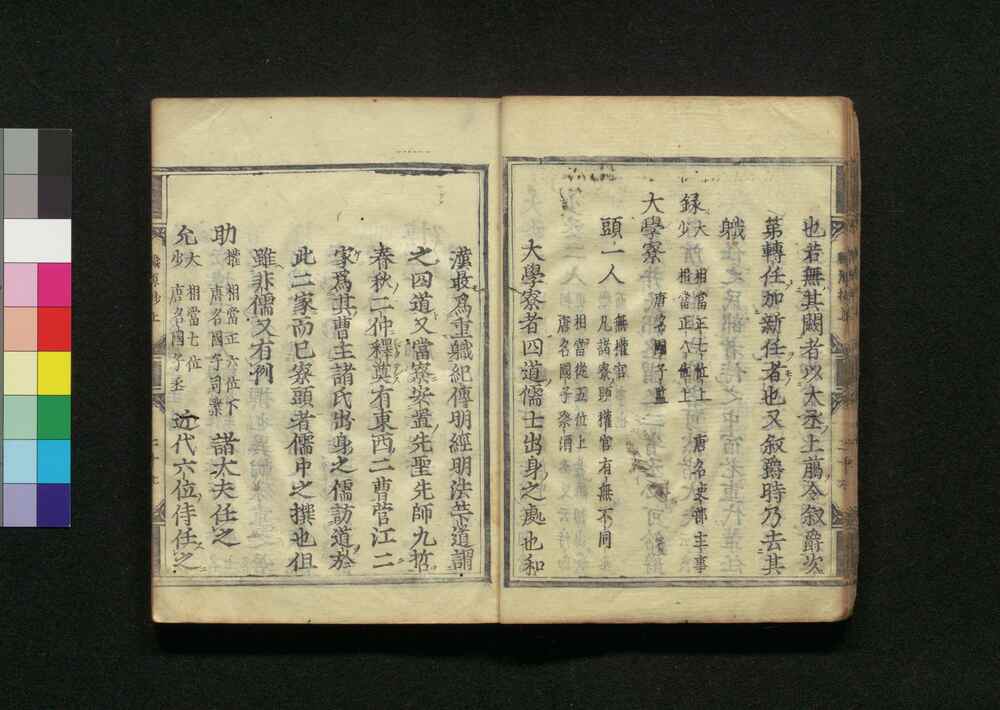 也若無其闕者以大丞上﨟令叙爵次
第轉任加新任者也又叙爵時乃去其
職
録大 相當正七位上 唐名吏部主事
少 相當正八位上
大學寮 唐名國子監
頭一人 無權官
凡諸寮頭權官有無不同
相當從五位上
唐名國子祭酒
大學寮者四道儒士出身之處也和
漢最爲重職紀傳明經明法筭道謂
之四道又當寮安置先聖先師九哲
春秋二仲釋奠有東西二曹菅江二
家爲其曹主諸氏出身之儒訪道於
此二家而已寮頭者儒中之撰也但
雖非儒又有例
助權 相當正六位下 諸大夫任之
唐名國子司業
允大 相當七位 近代六位侍任之
少 唐名國子丞